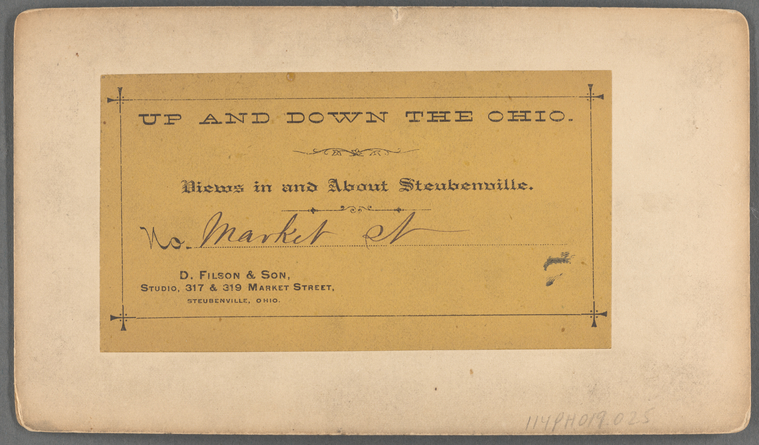 UP AND DOWN THE OHIO.
Views in and About Steubenville.
No. Market St
D. FILSON & SON,
STUDIO, 317 & 319 MARKET STREET,
STEUBENVILLE, OHIO.
114PH019.025